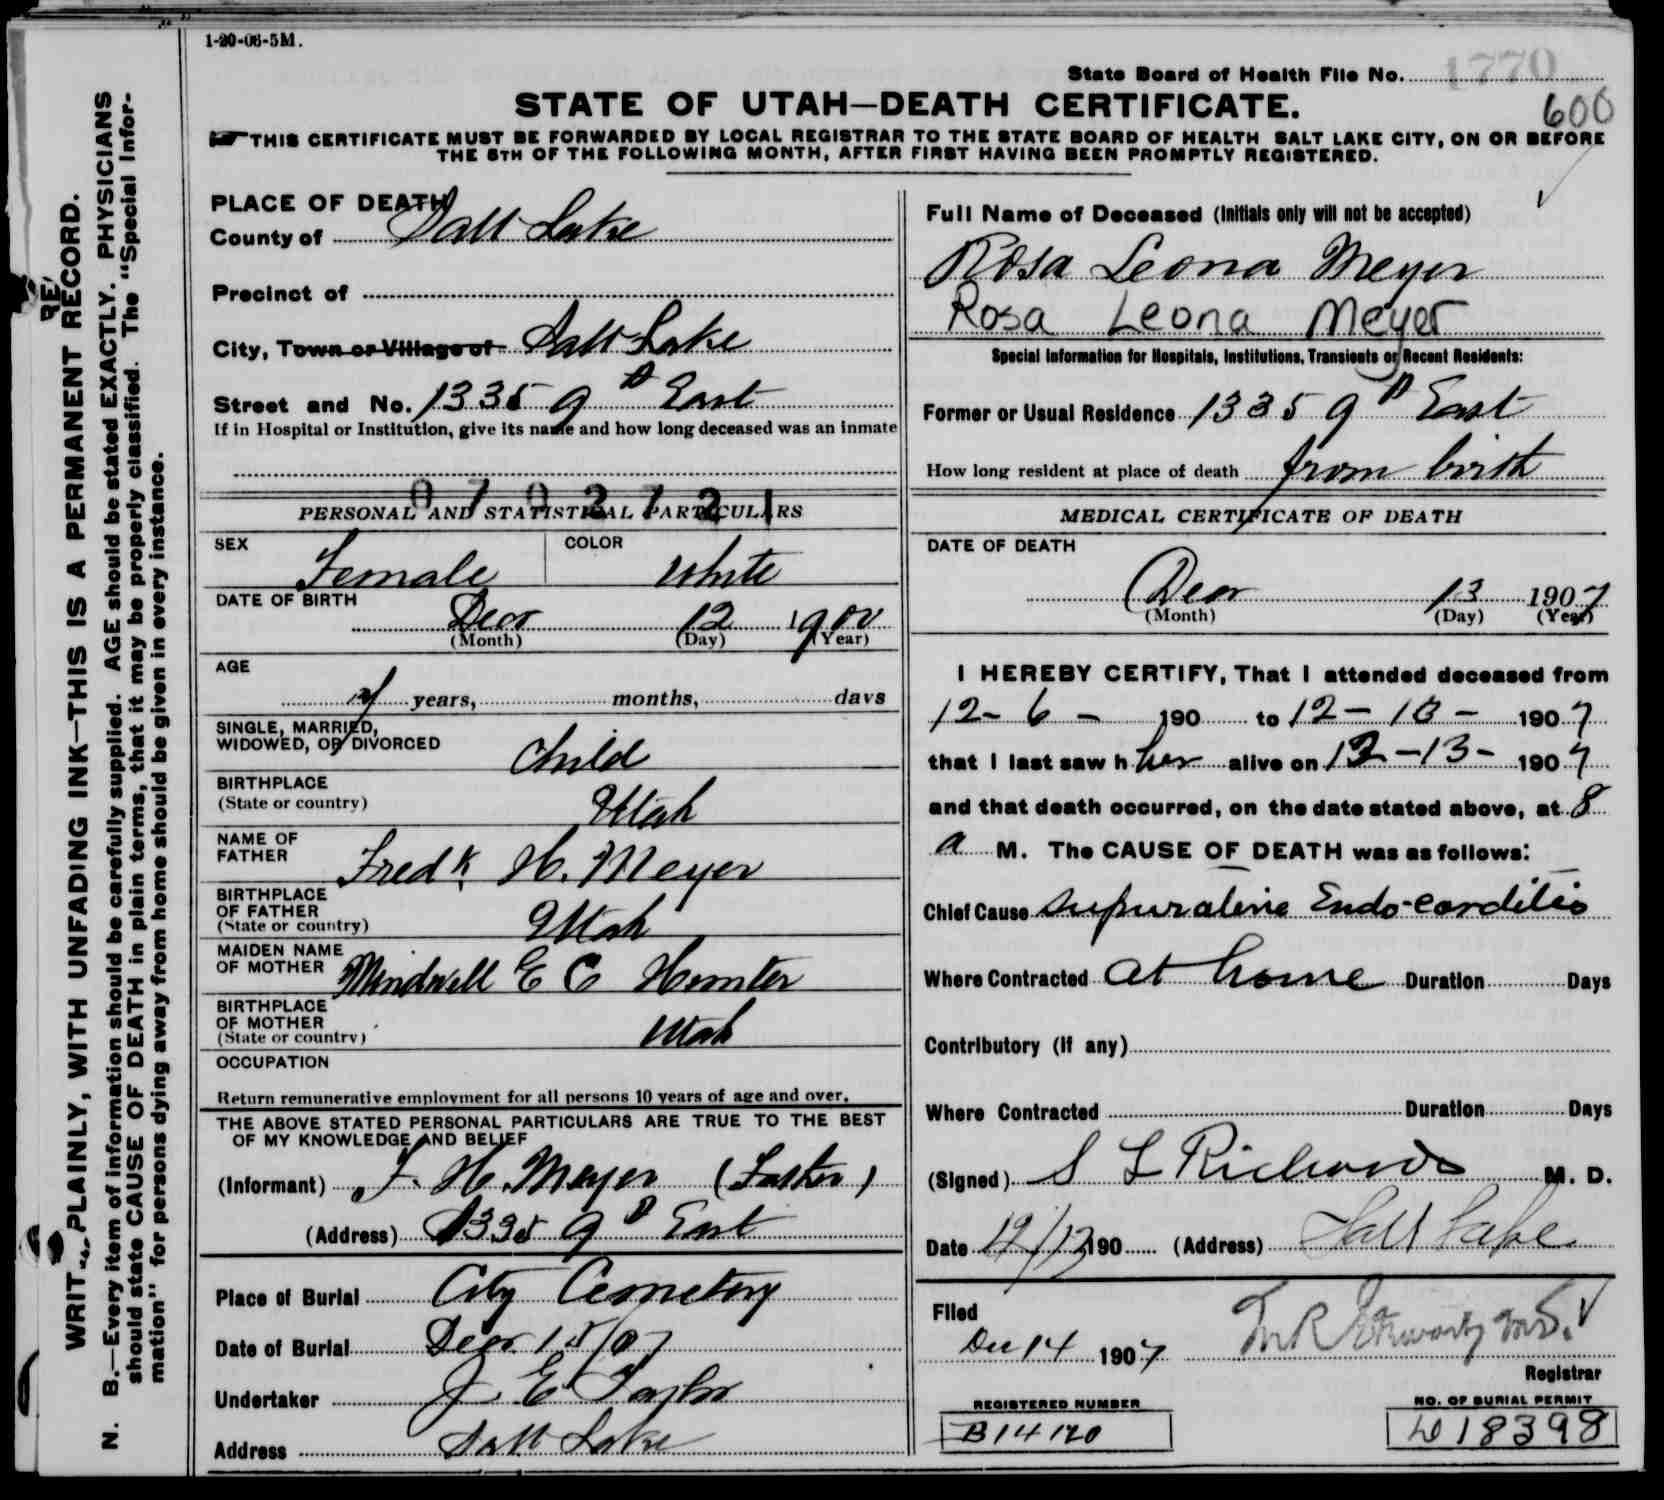 1-20-06-5M.
State Board of Health File No. 1770
STATE OF UTAH—DEATH CERTIFICATE.
600
THIS CERTIFICATE MUST BE FORWARDED BY LOCAL REGISTRAR TO THE STATE BOARD OF HEALTH SALT LAKE CITY, ON OR BEFORE
THE 5TH OF THE FOLLOWING MONTH, AFTER FIRST HAVING BEEN PROMPTLY REGISTERED.
WRITE PLAINLY, WITH UNFADING INK—THIS IS A PERMANENT RECORD.
N. B.—Every item of information should be carefully supplied. AGE should be stated EXACTLY. PHYSICIANS
should state CAUSE OF DEATH in plain terms, that it may be properly classified. The "Special Infor-
mation" for persons dying away from home should be given in every instance.
PLACE OF DEATH
County of Salt Lake
Precinct of
City, Town or Village of Salt Lake
Street and No. 1335 9th East
If in Hospital or Institution, give its name and how long deceased was an inmate
PERSONAL AND STATISTICAL PARTICULARS
SEX Female COLOR White
DATE OF BIRTH Decr 12 1900
(Month) (Day) (Year)
AGE
7 years, months, days
SINGLE, MARRIED,
WIDOWED, OR DIVORCED Child
BIRTHPLACE
(State or country) Utah
NAME OF
FATHER Fredk H. Meyer
BIRTHPLACE
OF FATHER
(State or country) Utah
MAIDEN NAME
OF MOTHER Mindwell E C Hunter
BIRTHPLACE
OF MOTHER
(State or country) Utah
OCCUPATION
Return remunerative employment for all persons 10 years of age and over.
THE ABOVE STATED PERSONAL PARTICULARS ARE TRUE TO THE BEST
OF MY KNOWLEDGE AND BELIEF
(Informant) F. H. Meyer (Father)
(Address) 1335 9th East
Place of Burial City Cemetery
Date of Burial Decr 15/07
Undertaker J E Taylor
Address Salt Lake
Full Name of Deceased (Initials only will not be accepted)
Rosa Leona Meyer
Rosa Leona Meyer
Special Information for Hospitals, Institutions, Transients or Recent Residents:
Former or Usual Residence 1335 9th East
How long resident at place of death from birth
MEDICAL CERTIFICATE OF DEATH
DATE OF DEATH
Decr 13 1907
(Month) (Day) (Year)
I HEREBY CERTIFY, That I attended deceased from
12-6- 190 to 12-13- 1907
that I last saw h her alive on 12-13- 1907
and that death occurred, on the date stated above, at 8
a M. The CAUSE OF DEATH was as follows:
Chief Cause Supurative Endo-carditis
Where Contracted at home Duration Days
Contributory (if any)
Where Contracted Duration Days
(Signed) S L Richards M. D.
Date 12/13 190 (Address) Salt Lake
Filed
Dec 14 1907
Registrar
REGISTERED NUMBER
B14120
NO. OF BURIAL PERMIT
18398